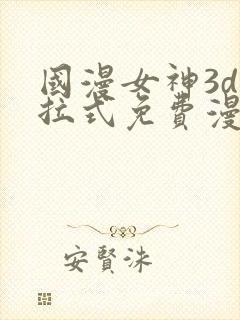 國漫女神3d
拉式免費漫
安賢洙